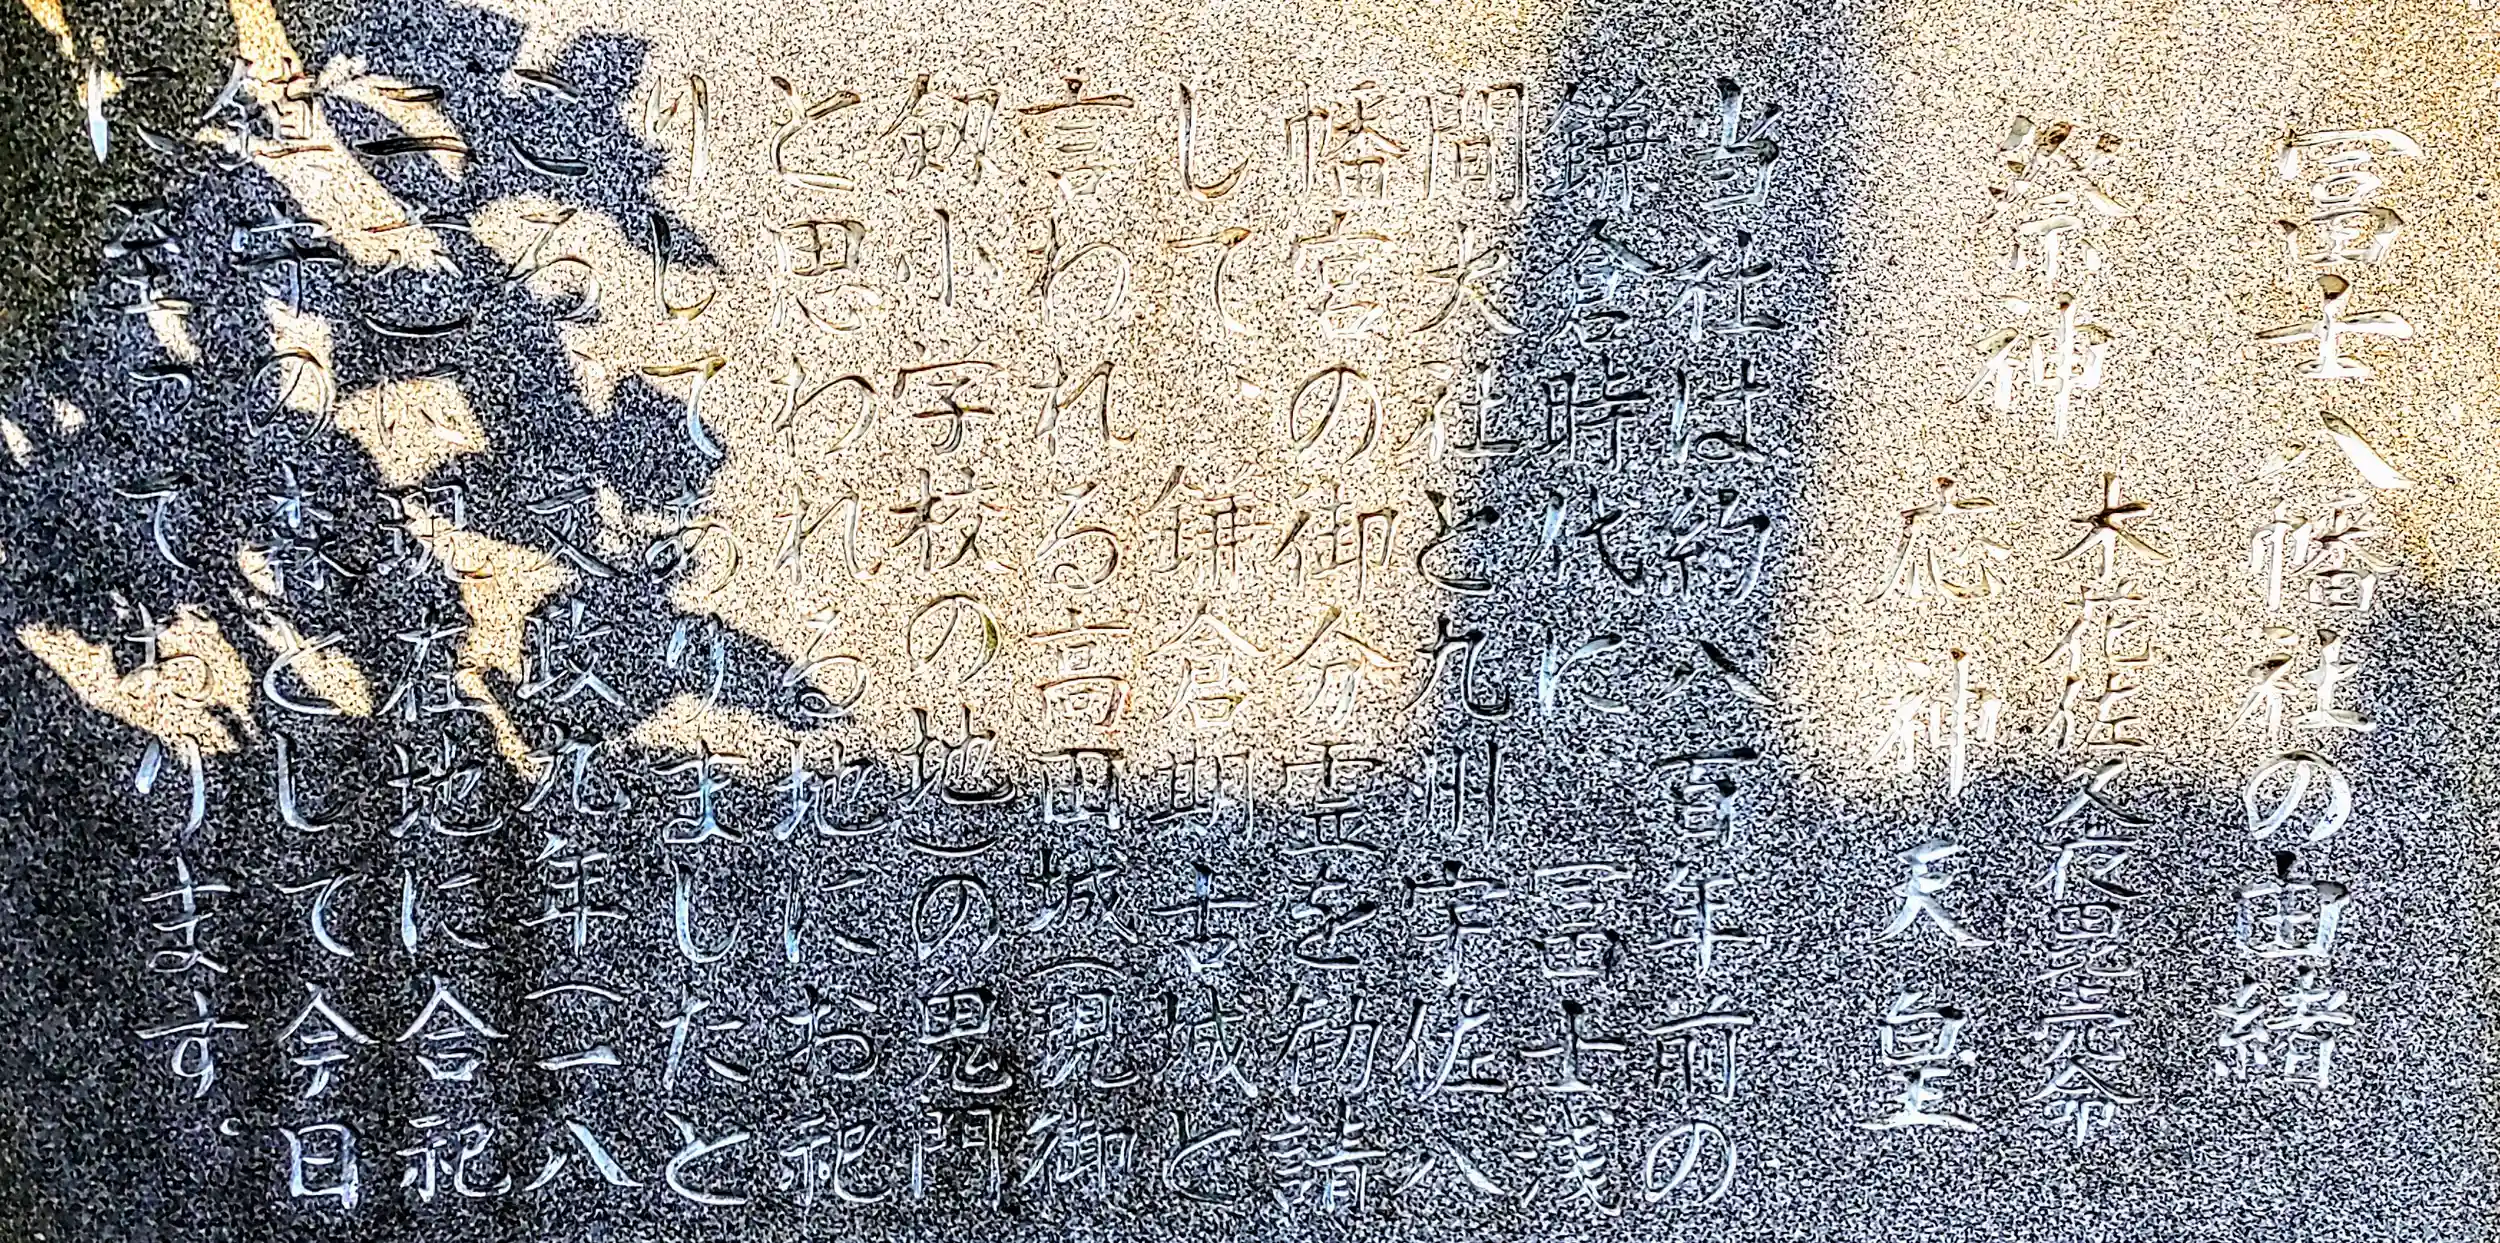 冨士八幡社の由緒
祭神
木花佐久夜毘売命
応神天皇
当社は約八百年前の
鎌倉時代に冨士浅
間大社と九州宇佐八
幡宮の御分霊を勧請
して、鎌倉明古城と
言われる高田城(現御
剱小学校の地)の鬼門
と思われる地にお祀
りしてありましたと
ころ 文政九年(一八
二六)現在地に合祀
鎮守の森として今日
に至っております。